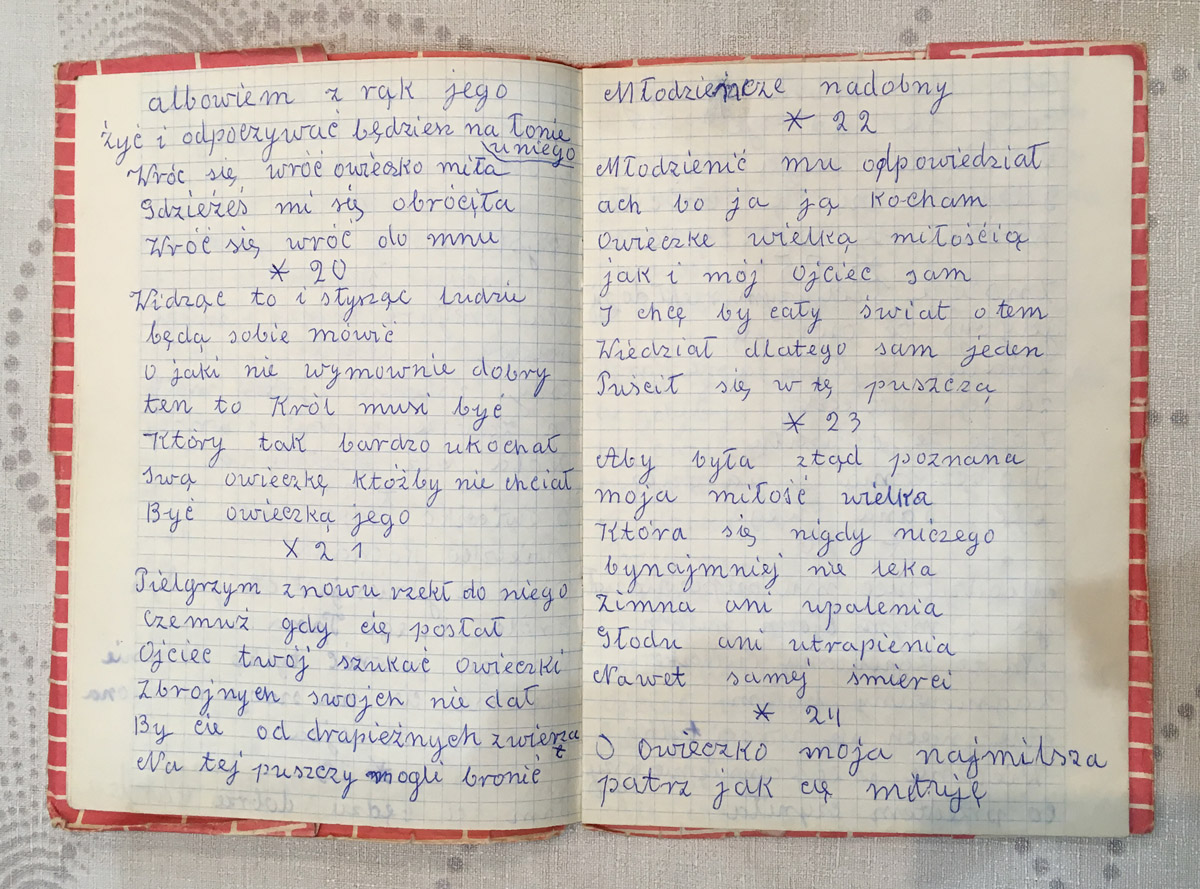 albowiem z rąk jego
żyć i odpoczywać będziesz na łonie
u niego
Wróć się wróć owieczko miła
gdzieżeś mi się obróciła
Wróć się wróć do mnu
* 20
Widząc to i słysząc ludzie
będą sobie mówić
O jaki nie wymownie dobry
ten to Król musi być
Który tak bardzo ukochał
swą owieczkę któżby nie chciał
Być owieczką jego
X 21
Pielgrzym znowu rzekł do niego
czemuż gdy cię posłał
Ojciec twój szukać owieczki
Zbrojnych swojch nie dał
By cie od drapieżnych zwierza
t
Na tej puszczy mogli bronić
Młodzieńcze nadobny
* 22
Młodzienić mu odpowiedział
ach bo ja ją kocham
Owieczke wielką miłością
jak i mój Ojciec sam
I chcę by cały świat o tem
Wiedział dlatego sam jeden
Puścił się w tę puszczą
* 23
Aby była ztąd poznana
moja miłość wielka
Która się nigdy niczego
bynajmniej nie leka
Zimna ani upalenia
Głodu ani utrapienia
Nawet samej śmierci
* 24
O owieczko moja najmilsza
patrz jak cę miłuję